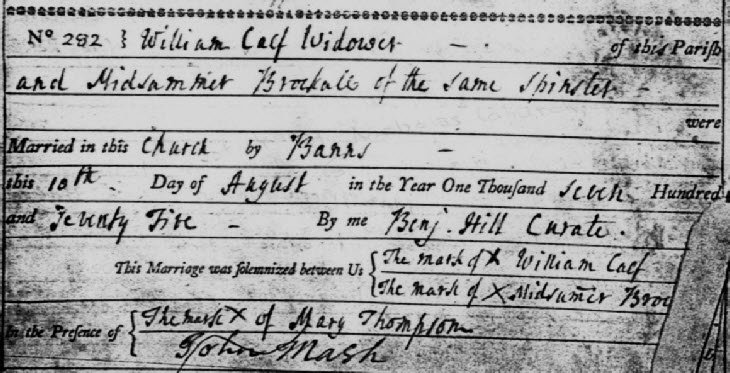 Nº 282 } William Calf Widower – of this Parish
and Midsummer Brockall of the same Spinster –
were
Married in this Church by Banns –
this 10th. Day of August in the Year One Thousand seven Hundred
and Seventy Five – By me Benj. Hill Curate.
This Marriage was solemnized between Us { The mark of X William Calf
The mark of X Midsumer Broc
In the Presence of { The mark X of Mary Thompson
John Mash